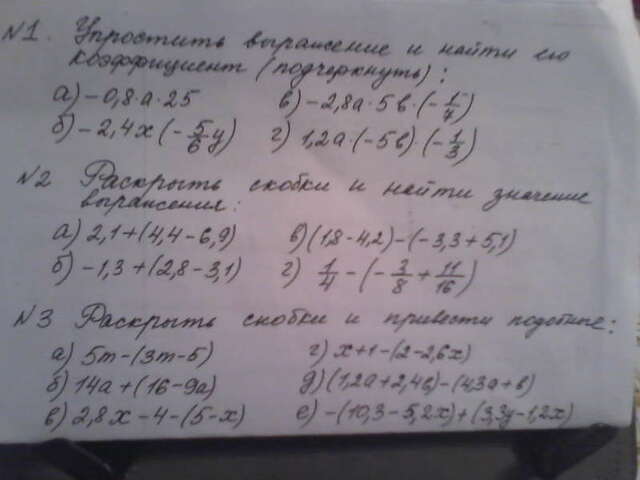 №1. Упростить выражение и найти его
коэффициент (подчеркнуть):
а) -0,8·а·25 в) -2,8а·5в·(-1/7)
б) -2,4х(-5/6у) г) 1,2а·(-5в)·(-1/3)
№2 Раскрыть скобки и найти значение
выражения:
а) 2,1+(4,4-6,9) в) (1,8-4,2)-(-3,3+5,1)
б) -1,3+(2,8-3,1) г) 1/4-(-3/8+11/16)
№3 Раскрыть скобки и привести подобные:
а) 5m-(3m-5) г) х+1-(2-2,6х)
б) 14а+(16-9а) д) (1,2а+2,4в)-(4,3а+в)
в) 2,8х-4-(5-х) е) -(10,3-5,2х)+(3,3у-1,2х)